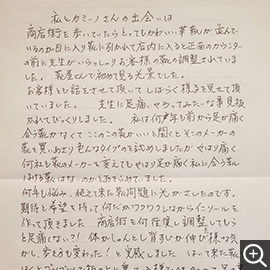 私とカミーノさんの出会いは
商店街を歩いていたらとてもかわいい革靴が並んで
いるのが目に入り靴に引かれて店内に入ると正面のカウンター
の前に先生がいらっしゃりお客様の靴の調整されていま
した。靴屋さんで初めて見る光景でした。
お客様とも話をさせて頂いてしばらく様子を見せて頂
いていました。 先生に足痛、やら
私は何年も前から足が痛く
合う靴がなくてここのこの靴がいいと聞くとそのメーカーの
靴を買い色んなタイプのを試めしましたがやはり痛く
何社も靴のメーカーを変えてもやはり足が痛く私に合う靴
はないのかとあきらめていました。
何年も悩み、絶えて来た靴問題に光がさしたのです。
期待と希望を持って何だかワクワクしながらインソールを
作って頂きました 商店街を何往復し調整してもらう
と足痛くない?! 体がしゃんとし背すじが伸び様な気
がし、歩き方も変わった!と実感しました。はいて来た靴